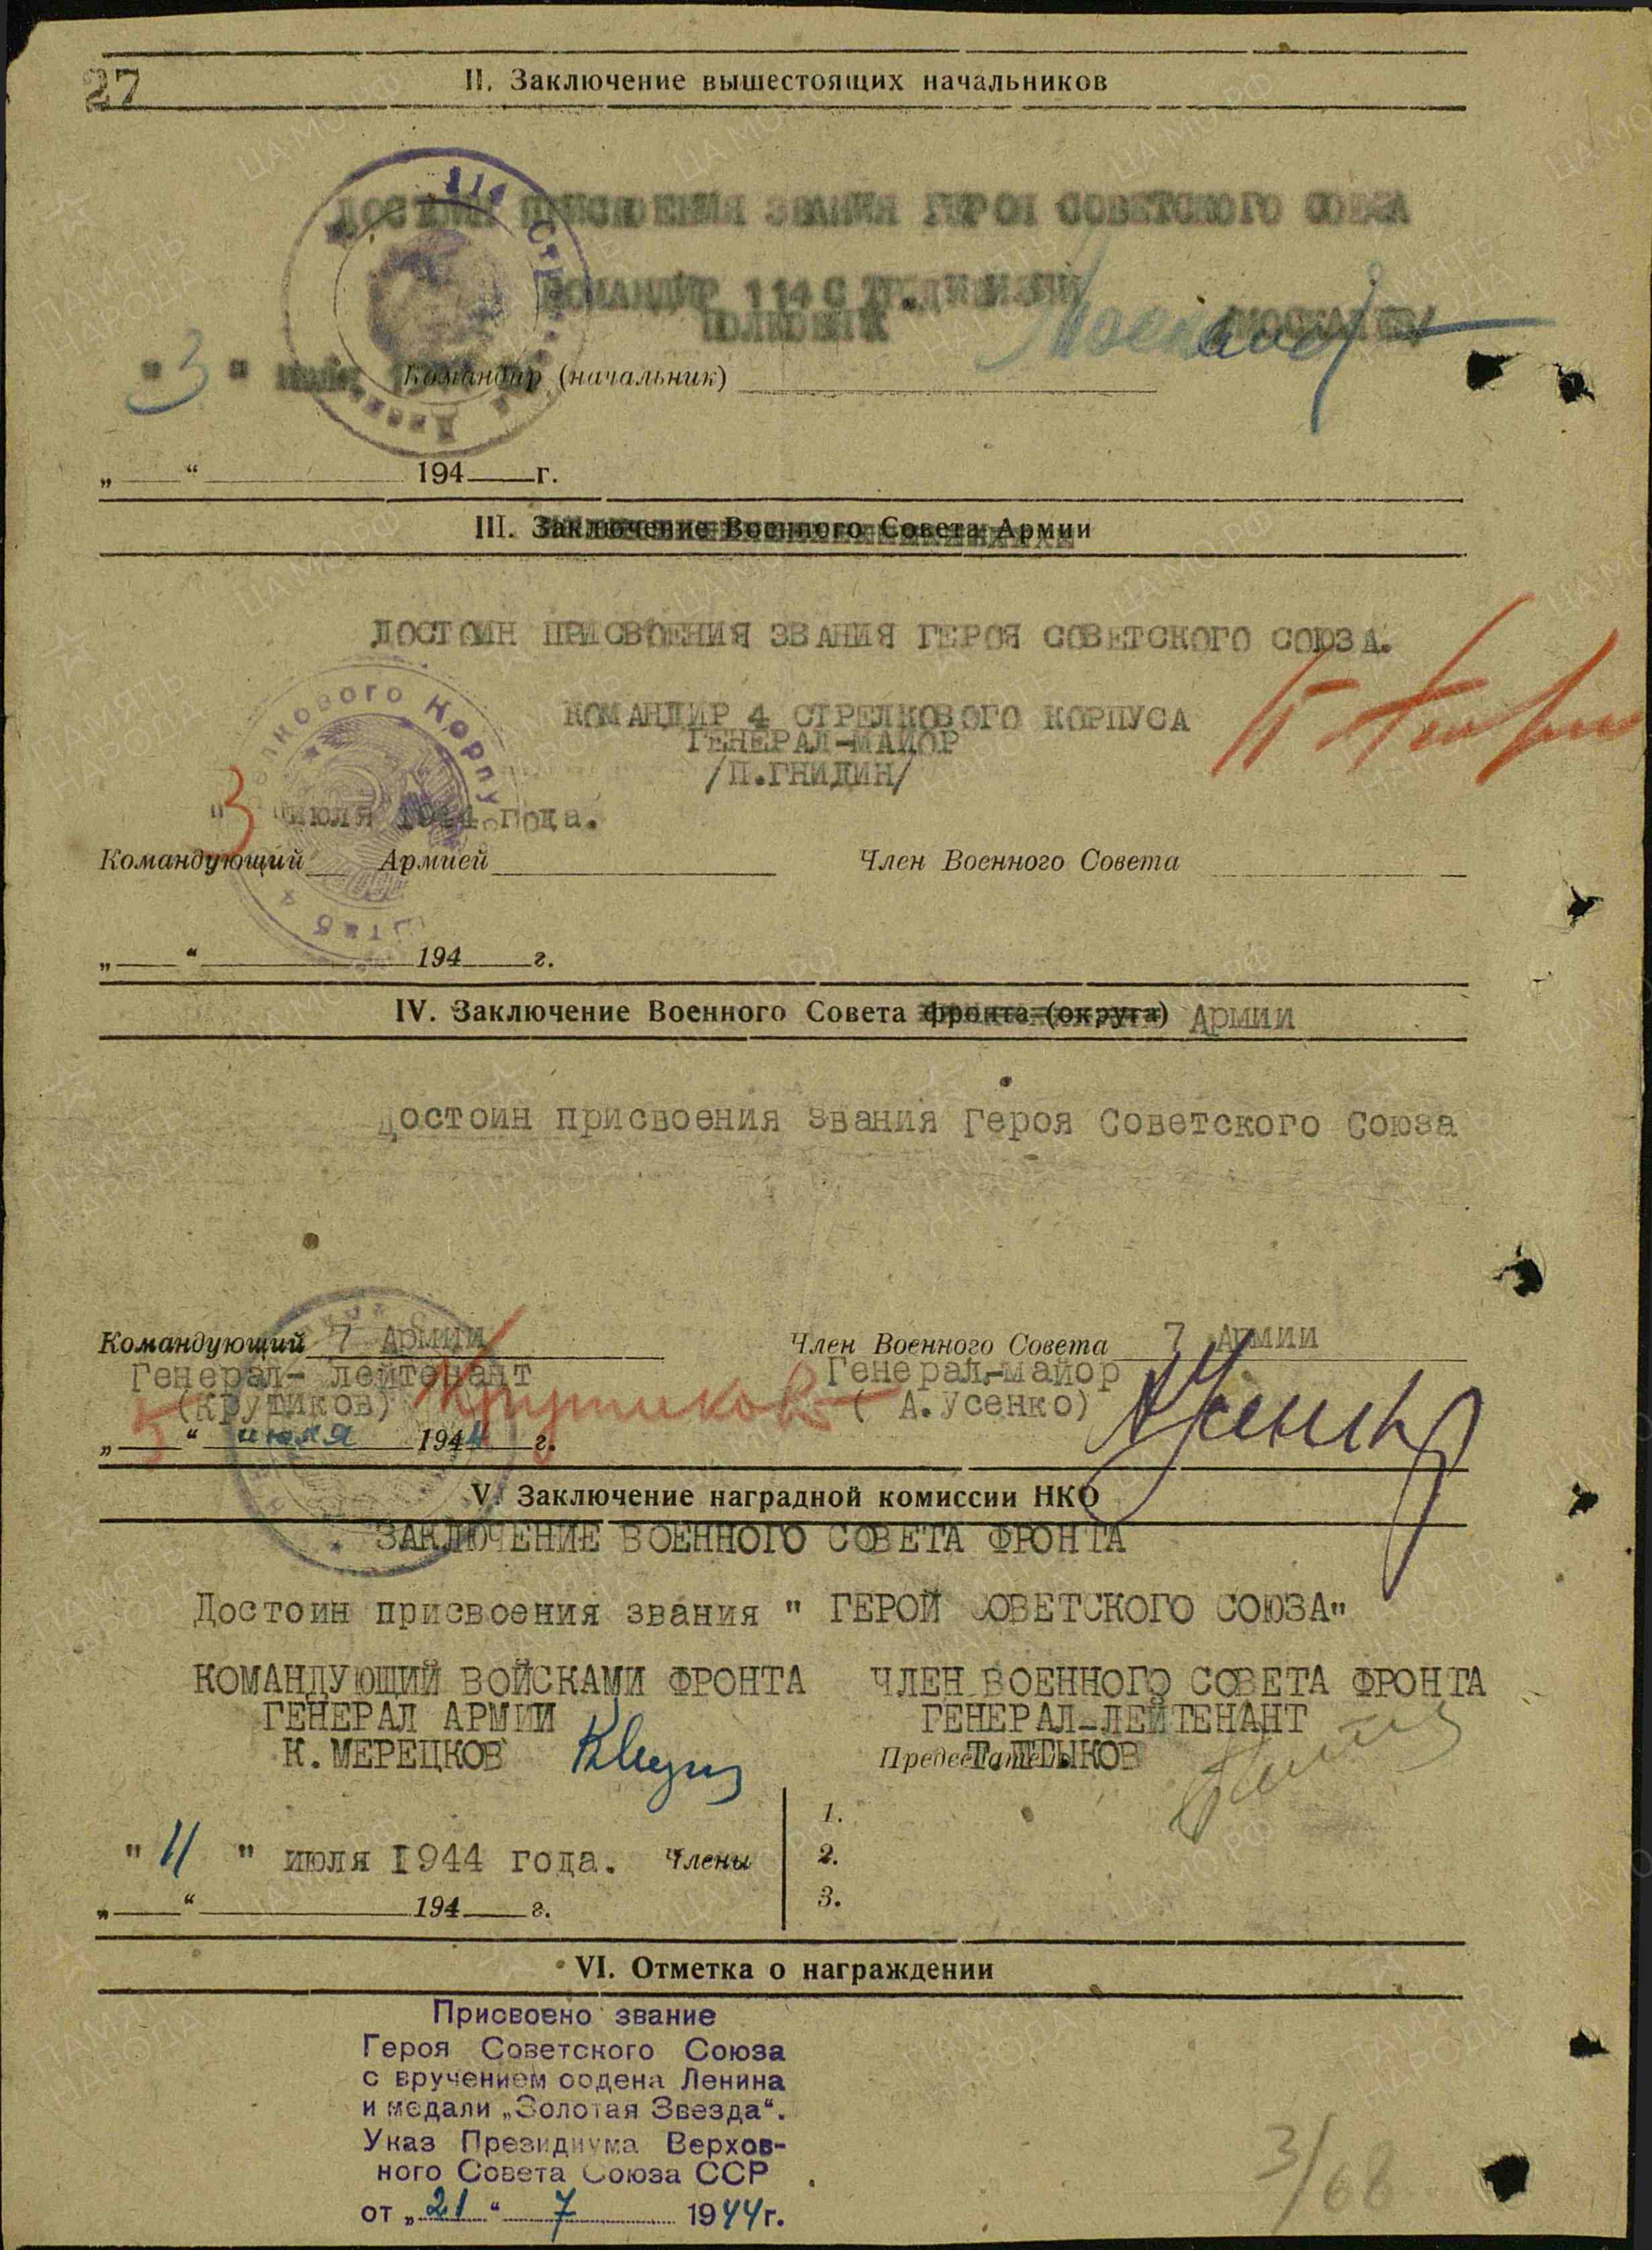 27
II. Заключение вышестоящих начальников
ДОСТОИН ПРИСВОЕНИЯ ЗВАНИЯ ГЕРОЯ СОВЕТСКОГО СОЮЗА
КОМАНДИР 114 СТР. ДИВИЗИИ
ПОЛКОВНИК /МОСКАЛЕВ/
"3"
Командир (начальник)
„ “ 194 г.
III. Заключение Военного Совета Армии
ДОСТОИН ПРИСВОЕНИЯ ЗВАНИЯ ГЕРОЯ СОВЕТСКОГО СОЮЗА.
КОМАНДИР 4 СТРЕЛКОВОГО КОРПУСА
ГЕНЕРАЛ-МАЙОР
/П.ГНИДИН/
"3" июля 1944 года.
Командующий Армией Член Военного Совета
„ “ 194 г.
IV. Заключение Военного Совета фронта (округа) Армии
Достоин присвоения звания Героя Советского Союза
Командующий 7 Армии Член Военного Совета 7 Армии
Генерал-лейтенант Генерал-майор
(Крутиков) Крутиков (А.Усенко) Усенко
„ “ июля 1944 г.
V. Заключение наградной комиссии НКО
ЗАКЛЮЧЕНИЕ ВОЕННОГО СОВЕТА ФРОНТА
Достоин присвоения звания " ГЕРОЙ СОВЕТСКОГО СОЮЗА"
КОМАНДУЮЩИЙ ВОЙСКАМИ ФРОНТА ЧЛЕН ВОЕННОГО СОВЕТА ФРОНТА
ГЕНЕРАЛ АРМИИ ГЕНЕРАЛ-ЛЕЙТЕНАНТ
К.МЕРЕЦКОВ Председатель Т.ШТЫКОВ
1.
"11" июля 1944 года. Члены 2.
„ “ 194 г. 3.
VI. Отметка о награждении
Присвоено звание
Героя Советского Союза
с вручением ордена Ленина
и медали „Золотая Звезда“.
Указ Президиума Верхов-
ного Совета Союза ССР
от „21“ 7 1944г.
3/68